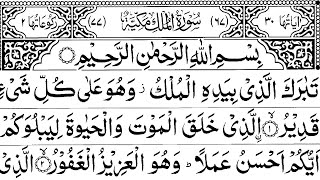 اٰیَاتُهَا ٣٠ (٦٧) سُوْرَةُ الْمُلْكِ مَكِّیَّةٌ (٧٧) رُكُوْعَاتُهَا ٢
بِسْمِ اللّٰهِ الرَّحْمٰنِ الرَّحِیْمِ
تَبٰرَكَ الَّذِیْ بِیَدِهِ الْمُلْكُ ز وَهُوَ عَلٰى كُلِّ شَیْءٍ
قَدِیْرُ ۙ ١ الَّذِیْ خَلَقَ الْمَوْتَ وَالْحَیٰوةَ لِیَبْلُوَكُمْ
اَیُّكُمْ اَحْسَنُ عَمَلًا ؕ وَهُوَ الْعَزِیْزُ الْغَفُوْرُ ۙ ٢ الَّذِیْ